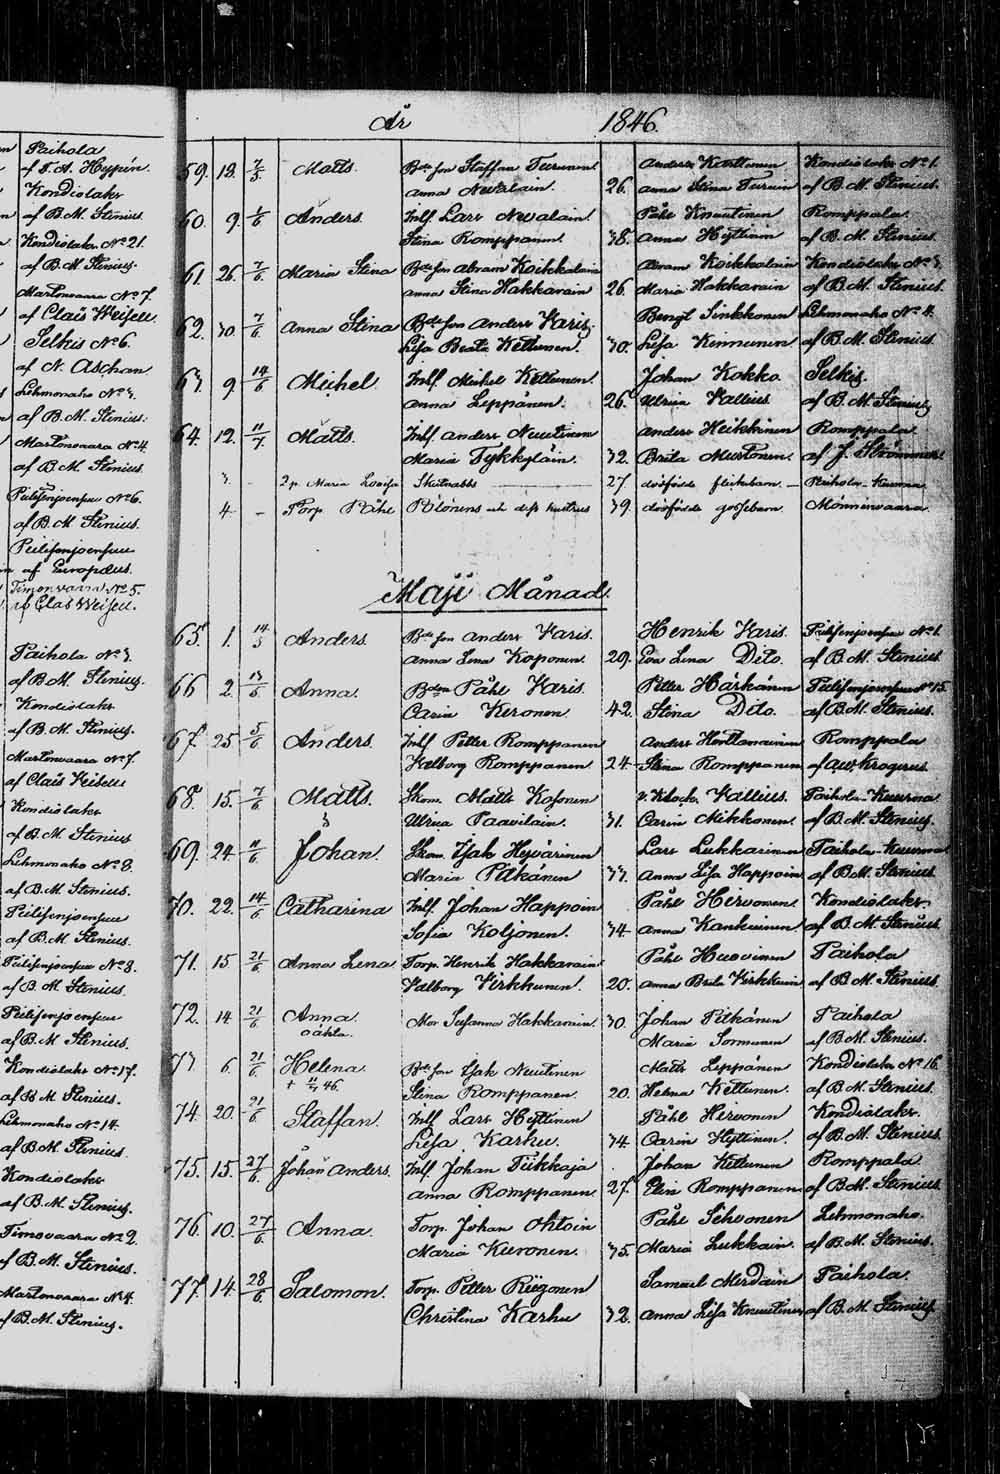 Paihola
af T. A. Heypén.
Kondiolaks
af B. M. Stenius.
Kondiolaks No 21.
af B. M. Stenius.
Martonvaara No 7.
af Claës Weisell
Selkis No 6.
af N. Aschan
Lehmonaho No 3.
af B. M. Stenius.
Martonvaara No 4.
af B. M. Stenius.
Pielisenjoensuu No 6.
af B. M. Stenius.
Pielisenjoensuu
af Europæus.
Timovaara No 5.
af Clas Weisell.
Paihola No 3.
af B. M. Stenius.
Kondiolaks
af B. M. Stenius.
Martonvaara No 7.
af Claës Weisell
Kondiolaks
af B. M. Stenius
Lehmonaho No 8.
af B. M. Stenius.
Pielisenjoensuu
af B. M. Stenius.
Pielisenjoensuu No 8.
af B. M. Stenius.
Pielisenjoensuu
af B. M. Stenius.
Kondiolaks No 17.
af B. M. Stenius.
Lehmonaho No 14.
af B. M. Stenius.
Kondiolaks
af B. M. Stenius.
Timovaara No 2.
af B. M. Stenius.
Martonvaara No 4.
af B. M. Stenius.
År 1846.
59. 18. 7/5 Matts. Bde son Staffan Turunen Anders Karttunen Kondiolaks No 1.
Anna Nevalain. 26. Anna Stina Turuin af B. M. Stenius.
60. 9. 1/6 Anders. Inh. Lars Nevalain. Påhl Knuutinen Romppala.
Stina Romppanen. 38. Anna Hyttinen af B. M. Stenius.
61. 26. 7/6 Maria Stina Bde son Abram Koikkalain Abram Koikkalain Kondiolaks No 3.
Anna Stina Hakkarain 26. Maria Hakkarain af B. M. Stenius.
62. 30. 7/6 Anna Stina Bde son Anders Varis. Bengt Sinkkonen Lehmonaho No 4.
Lisa Beata Kettunen. 30. Lisa Kinnunen af B. M. Stenius.
63. 9. 14/6 Michel. Inh. Michel Kettunen. Johan Kokko. Selkis.
Anna Leppänen. 26. Ulrica Wallius af B. M. Stenius
64. 12. 11/7 Matts. Inh. Anders Nuutinen Anders Heikkinen Romppala
Maria Tykkyläin. 32. Brita Mustonen. af J. Strömmer.
3. - 2 p. Maria Lovisa Skutnabb 27 dödfödde flickebarn. - Paihola-Kuurna.
4 - Torp. Påhl Pölönens och dess hustrus 39. dödfödde gossebarn. Mönninvaara.
Maji Månad.
65. 1. 14/5 Anders. Bde son Anders Varis. Henrik Varis. Pielisenjoensuu No 1.
Anna Lena Koponen. 29. Eva Lena Dito. af B. M. Stenius
66 2. 13/6 Anna. Påhl Varis. Petter Härkänen Pielisenjoensuu No 15.
Carin Kuronen. 42. Stina Dito. af B. M. Stenius.
67. 25 5/6 Anders. Inh. Petter Romppanen Anders Romppala
Walborg Romppanen 24. Stina Romppanen af Aw. Krogerus.
68. 15. 7/6 Matts. Skom. Matts Kosonen v. Klock. Wallius. Paihola-Kuurna
Ulrica Paavilain. 31. Carin Mikkonen. af B. M. Stenius.
69. 24 11/6 Johan. Skom. Isak Hyvärinen Lars Lukkarinen Paihola-Kuurna
Maria Pitkänen 33. Anna Lisa Happoin af B. M. Stenius.
70. 22. 14/6 Catharina Inh. Johan Happoin Påhl Hirvonen. Kondiolaks.
Sofia Koljonen. 34. Anna Kankuinen af B. M. Stenius
71. 15 21/6 Anna Lena Torp. Henrik Hakkarain Påhl Huovinen Paihola
Walborg Virkkunen. 20. Anna Brita Virkkuin af B. M. Stenius
72. 14. 21/6 Anna. Mor Susanna Hakkarain. 30. Johan Pitkänen Paihola
oäkta. Maria Sormunen af B. M. Stenius.
73. 6. 21/6 Helena Bde son Isak Nuutinen Matts Leppänen Kondiolaks No 16.
+ 11/7 46 Stina Romppanen. 20. Helena Kettunen. af B. M. Stenius.
74. 20. 21/6 Staffan. Inh. Lars Hyttinen Påhl Hirvonen Kondiolaks.
Lisa Karhu. 34. Carin Hyttinen. af B. M. Stenius.
75. 15. 27/6 Johan Anders. Inh. Johan Tiikkaja Johan Kettunen Romppala.
Anna Romppanen 27. Elin Romppanen af B. M. Stenius
76. 10. 27/6 Anna. Torp. Johan Ohtoin Påhl Sihvonen Lehmonaho.
Maria Kuronen. 35. Maria Lukkain. af B. M. Stenius.
77. 14. 28/6 Salomon. Torp. Petter Riigonen Samuel Merdain Paihola.
Christina Karhu 32. Anna Lisa Knuutinen af B. M. Stenius.